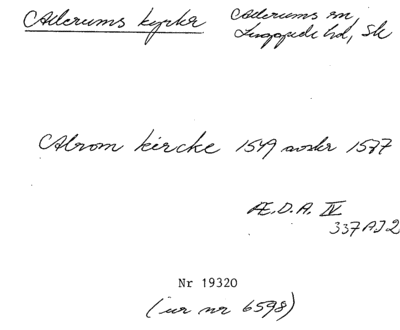 Allerums kyrka Allerums sn,
Luggude hd, Sk
Alrom kircke 1549 avskr 1577
Æ.D.A. IV
337 AJ2
Nr 19320
(ur nr 6598)